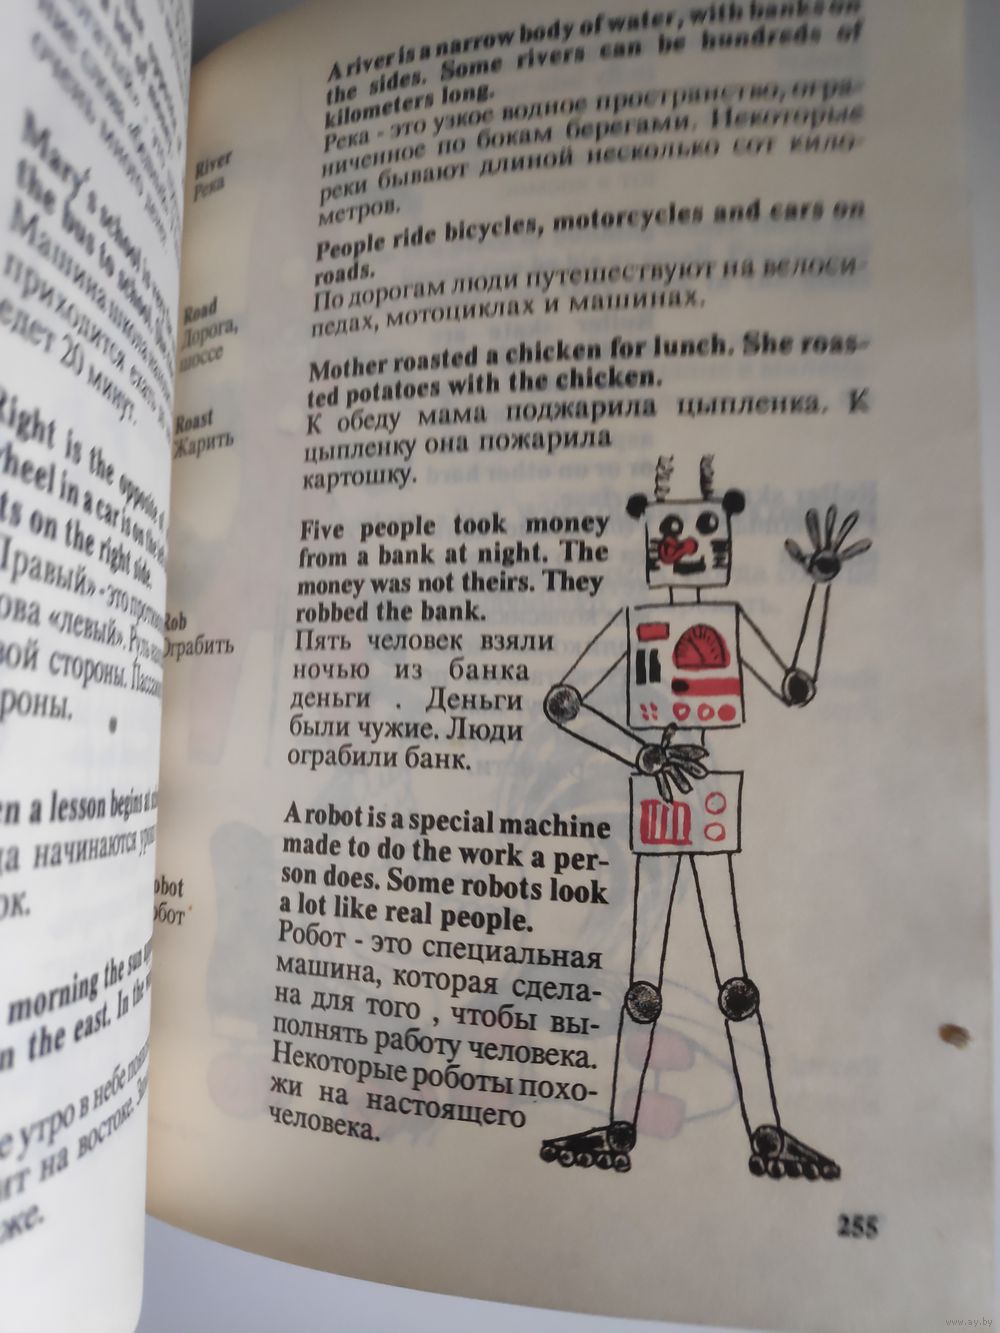 Mary's school is very
the bus to school.
приходится ехать
едет 20 минут.
Right is the opposite of
wheel in a car is on the
on the right side.
ова «левый». Руль
вой стороны.
роны.
a lesson begins at
начинаются
ок.
morning the sun
the east. In the
утро в небе
ит на востоке.
же.
River
Река
A river is a narrow body of water, with banks on
the sides. Some rivers can be hundreds of
kilometers long.
Река - это узкое водное пространство, огра-
ниченное по бокам берегами. Некоторые
реки бывают длиной несколько сот кило-
метров.
Road
Дорога,
шоссе
People ride bicycles, motorcycles and cars on
roads.
По дорогам люди путешествуют на велоси-
педах, мотоциклах и машинах.
Roast
Жарить
Mother roasted a chicken for lunch. She roas-
ted potatoes with the chicken.
К обеду мама поджарила цыпленка. К
цыпленку она пожарила
картошку.
Rob
Ограбить
Five people took money
from a bank at night. The
money was not theirs. They
robbed the bank.
Пять человек взяли
ночью из банка
деньги . Деньги
были чужие. Люди
ограбили банк.
obot
обот
A robot is a special machine
made to do the work a per-
son does. Some robots look
a lot like real people.
Робот - это специальная
машина, которая сдела-
на для того , чтобы вы-
полнять работу человека.
Некоторые роботы похо-
жи на настоящего
человека.
255
www.ay.by